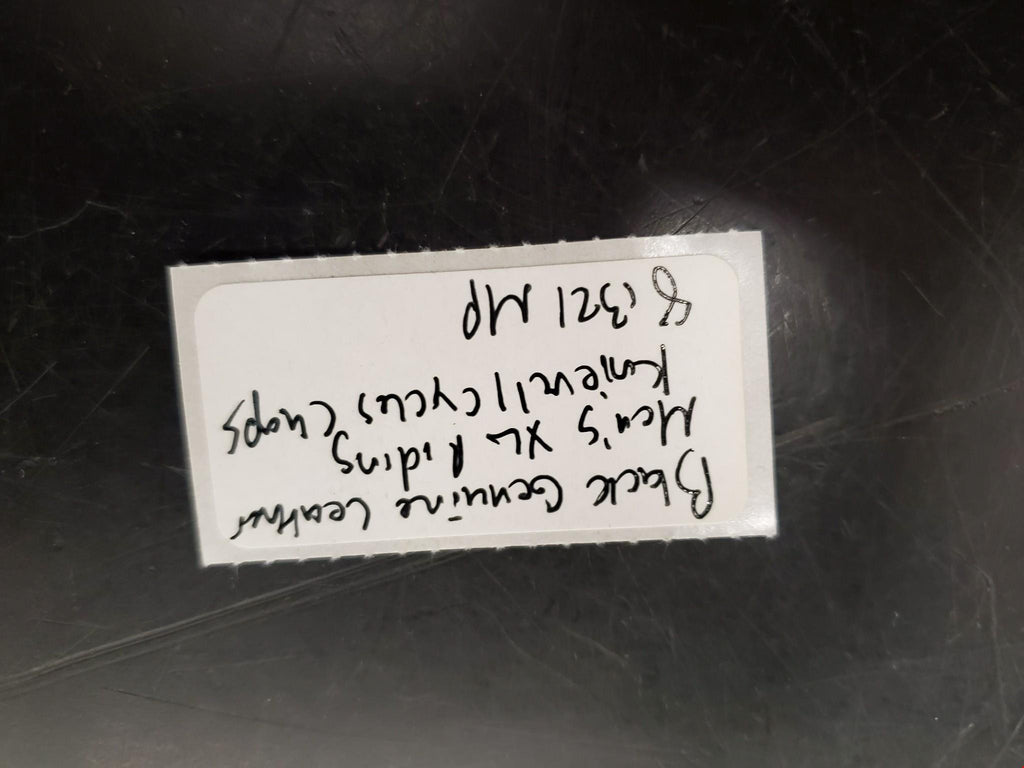 Black Genuine Leather
Men's XL Riding
Knievell Cycles Chaps
8 1321 MP